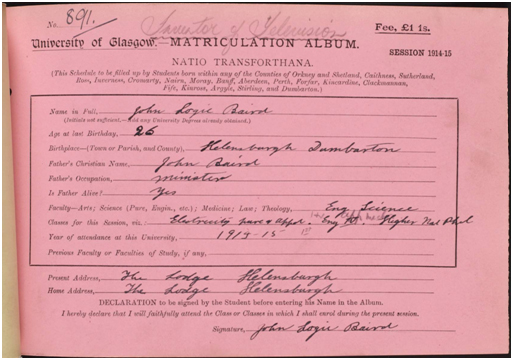 No. 891.
Inventor of Television
Fee, £1 1s.
University of Glasgow.—MATRICULATION ALBUM.
SESSION 1914-15
NATIO TRANSFORTHANA.
(This Schedule to be filled up by Students born within any of the Counties of Orkney and Shetland, Caithness, Sutherland,
Ross, Inverness, Cromarty, Nairn, Moray, Banff, Aberdeen, Perth, Forfar, Kincardine, Clackmannan,
Fife, Kinross, Argyle, Stirling, and Dumbarton.)
Name in Full, John Logie Baird
(Initials not sufficient.—Add any University Degree already obtained.)
Age at last Birthday, 26
Birthplace—(Town or Parish, and County), Helensburgh Dumbarton
Father's Christian Name, John Baird
Father's Occupation, minister
Is Father Alive? Yes
Faculty—Arts; Science (Pure, Engin., etc.); Medicine; Law; Theology, Eng. Science
Classes for this Session, viz. Electricity pure & appl. Eng. Higher Nat Phil
Year of attendance at this University, 1914-15
Previous Faculty or Faculties of Study, if any,
Present Address, The Lodge Helensburgh
Home Address, The Lodge Helensburgh
DECLARATION to be signed by the Student before entering his Name in the Album.
I hereby declare that I will faithfully attend the Class or Classes in which I shall enrol during the present session.
Signature, John Logie Baird